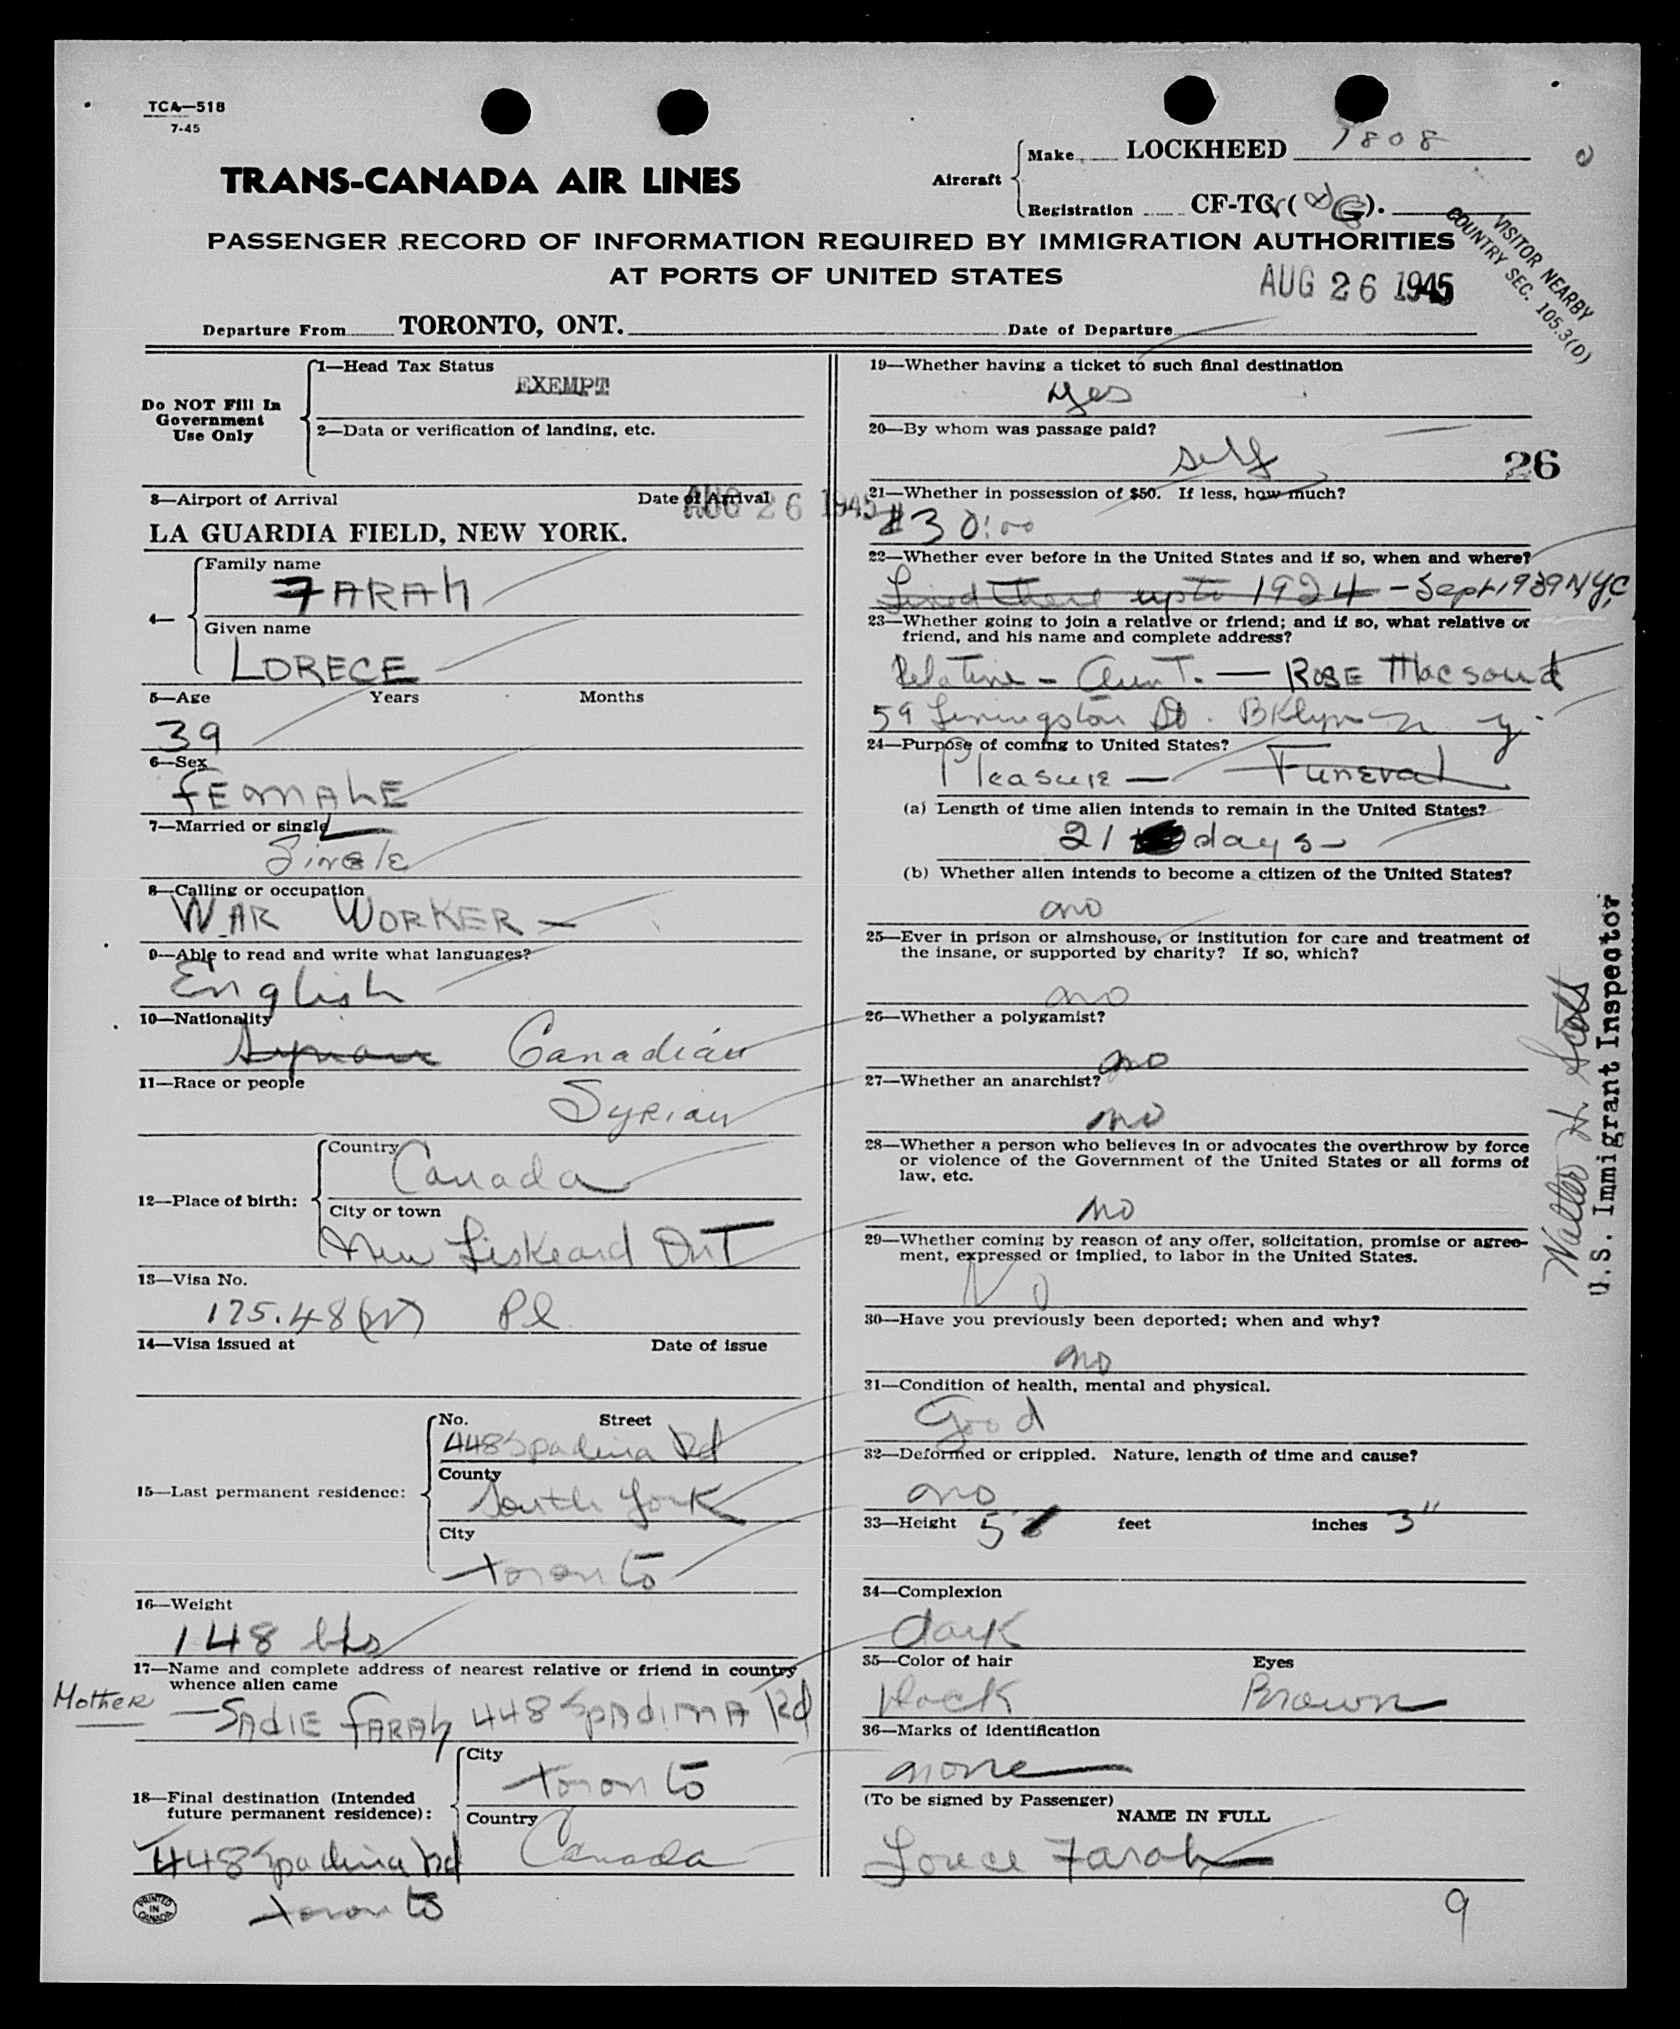 TCA—518
7-45
TRANS-CANADA AIR LINES
Aircraft
Make LOCKHEED 1808
Registration CF-TC ( ).
PASSENGER RECORD OF INFORMATION REQUIRED BY IMMIGRATION AUTHORITIES
AT PORTS OF UNITED STATES
VISITOR NEARBY
COUNTRY SEC. 105.3(D)
AUG 26 1945
Departure From TORONTO, ONT.
Date of Departure
Do NOT Fill In
Government
Use Only
1—Head Tax Status
EXEMPT
2—Data or verification of landing, etc.
3—Airport of Arrival Date of Arrival
AUG 26 1945
LA GUARDIA FIELD, NEW YORK.
4—
Family name
FARAH
Given name
LORECE
5—Age Years Months
39
6—Sex
FEMALE
7—Married or single
Single
8—Calling or occupation
WAR WORKER —
9—Able to read and write what languages?
English
10—Nationality
Syrian Canadian
11—Race or people
Syrian
12—Place of birth:
Country
Canada
City or town
New Liskeard ONT
13—Visa No.
175.48 Pl
14—Visa issued at Date of issue
15—Last permanent residence:
No. Street
448 Spadina Rd
County
South York
City
Toronto
16—Weight
148 lbs
17—Name and complete address of nearest relative or friend in country
whence alien came
Mother — SADIE FARAH 448 SPADINA Rd
18—Final destination (Intended
future permanent residence):
City
Toronto
Country
Canada
448 Spadina Rd
Toronto
PRINTED
IN
CANADA
19—Whether having a ticket to such final destination
yes
20—By whom was passage paid?
self
26
21—Whether in possession of $50. If less, how much?
$30.00
22—Whether ever before in the United States and if so, when and where?
Lived there up to 1924 - Sept 1939 NYC
23—Whether going to join a relative or friend; and if so, what relative or
friend, and his name and complete address?
Relative - Aunt. — ROSE Macsoud
59 Livingston St. Bklyn N.Y.
24—Purpose of coming to United States?
Pleasure — Funeral
(a) Length of time alien intends to remain in the United States?
21 days
(b) Whether alien intends to become a citizen of the United States?
no
25—Ever in prison or almshouse, or institution for care and treatment of
the insane, or supported by charity? If so, which?
no
26—Whether a polygamist?
no
27—Whether an anarchist?
no
28—Whether a person who believes in or advocates the overthrow by force
or violence of the Government of the United States or all forms of
law, etc.
no
29—Whether coming by reason of any offer, solicitation, promise or agree-
ment, expressed or implied, to labor in the United States.
No
30—Have you previously been deported; when and why?
no
31—Condition of health, mental and physical.
Good
32—Deformed or crippled. Nature, length of time and cause?
no
33—Height 5' feet inches 3"
34—Complexion
dark
35—Color of hair Eyes
black Brown
36—Marks of identification
none
(To be signed by Passenger)
NAME IN FULL
Lorece Farah
9
Walter H. Scott
U.S. Immigrant Inspector